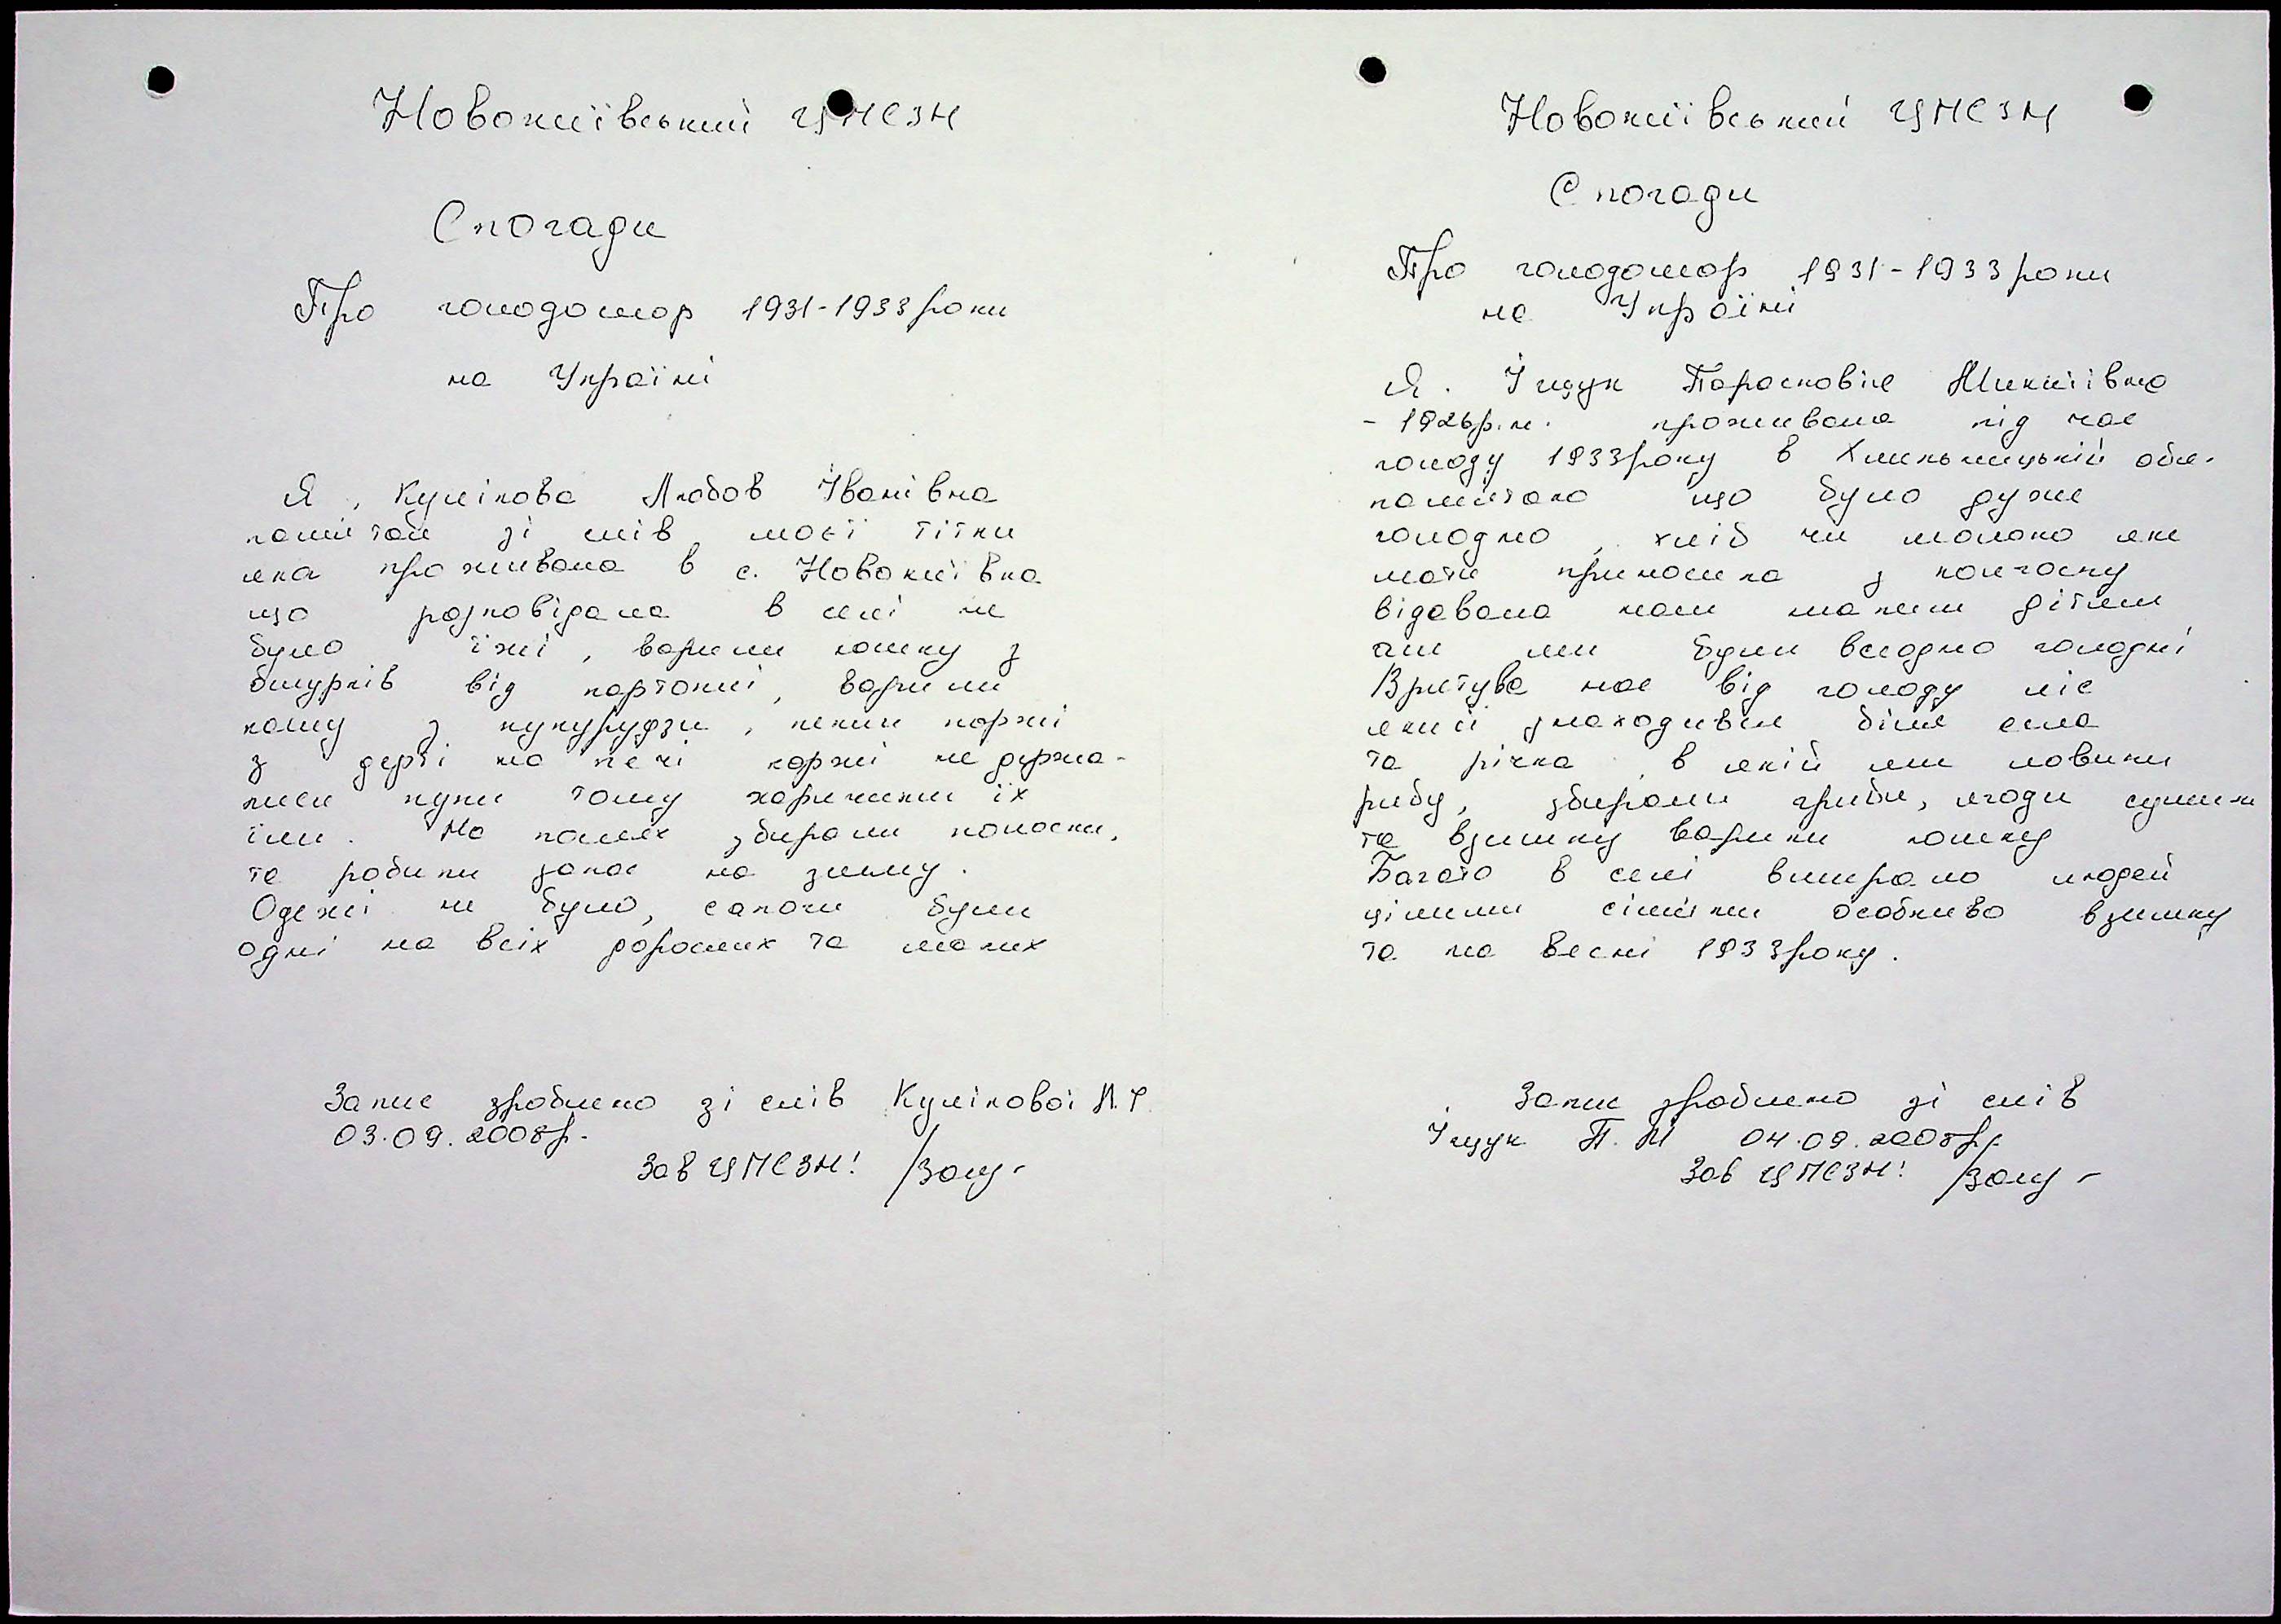 Новокиївський ЦПСЗН
Спогади
Про голодомор 1931-1933 роки
на Україні
Я, Кулікова Любов Іванівна
зі слів моєї тітки
яка проживала в с. Новокиївка
що розповідала в селі не
було їжі, варили юшку з
від картоплі, варили
кашу з кукурудзи, пекли коржі
з дерті на печі коржі не держа-
лися купи тому їх
їли. На полях збирали колоски,
та робили запас на зиму.
Одежі не було, сапоги були
одні на всіх дорослих та малих
Запис зроблено зі слів Кулікової Л.І.
03.09.2008р.
Зав ЦПСЗН:
Новокиївський ЦПСЗН
Спогади
Про голодомор 1931-1933 роки
на Україні
Я. Іщук Парасковія Микиївна
- 1926р.н. проживала під час
голоду 1933 року в Хмельницькій обл.
памятаю що було дуже
голодно, хліб чи молоко яке
мати приносила з колгоспу
відавала нам малим дітям
але ми були всеодно голодні
Врятува нас від голоду ліс
який знаходився біля села
та річка в якій ми ловили
рибу, збирали гриби, ягоди сушили
та взимку варили юшку
Багато в селі вмирало людей
цілими сімями особливо взимку
та на весні 1933 року.
Запис зроблено зі слів
Іщук П.М 04.09.2008р.
Зав ЦПСЗН: